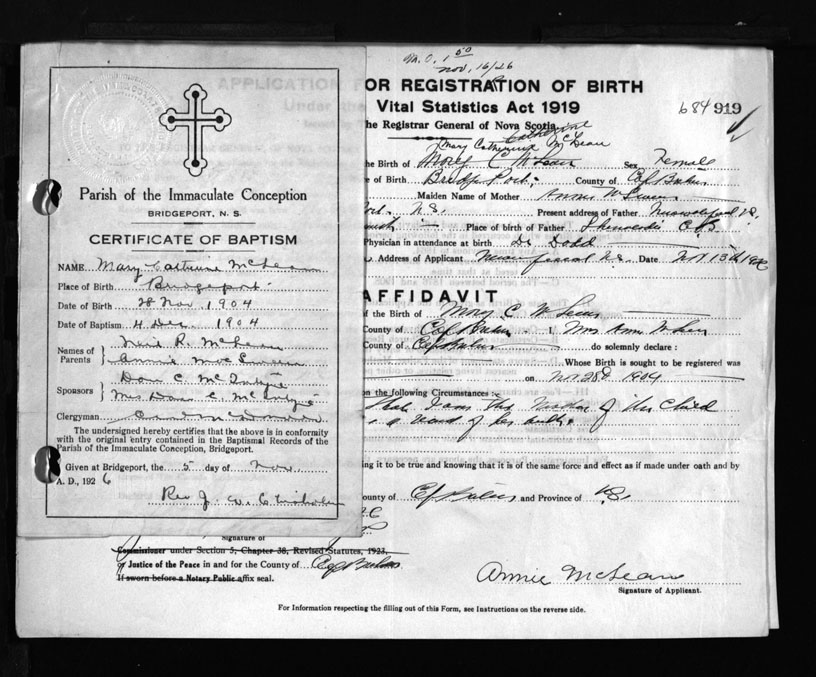 M.O. 1 50
Nov. 16/26
APPLICATION F
OR REGISTRATION OF BIRTH
Under the
Vital Statistics Act 1919
684 919
he Registrar General of Nova Scotia
Catherine
Mary Catherine McLean
the Birth of Mary C McLean Sex Female
e of Birth Bridgeport County of Cape Breton
Maiden Name of Mother Annie
N.S. Present address of Father
Place of birth of Father C B
Physician in attendance at birth Dr Dodd
Address of Applicant N.S. Date Nov 13th 1926
AFFIDAVIT
of the Birth of Mary C McLean
County of Cape Breton I, Mrs Annie McLean
County of Cape Breton do solemnly declare :
Whose Birth is sought to be registered was
on Nov 28th 1904
on the following Circumstances :
That I am the Mother of this Child
a record of her birth
ing it to be true and knowing that it is of the same force and effect as if made under oath and by
ounty of Cape Breton and Province of N.S.
Signature of
Commissioner under Section 5, Chapter 38, Revised Statutes, 1923,
or Justice of the Peace in and for the County of Cape Breton
If sworn before a Notary Public affix seal.
Annie McLean
Signature of Applicant.
For Information respecting the filling out of this Form, see Instructions on the reverse side.
Parish of the Immaculate Conception
BRIDGEPORT, N. S.
CERTIFICATE OF BAPTISM
NAME Mary Catherine McLean
Place of Birth Bridgeport
Date of Birth 28 Nov 1904
Date of Baptism 4 Dec. 1904
Names of Parents Neil R. McLean
Annie Mac
Sponsors Dan C. McIntyre
Mrs Dan C. McIntyre
Clergyman
The undersigned hereby certifies that the above is in conformity
with the original entry contained in the Baptismal Records of the
Parish of the Immaculate Conception, Bridgeport.
Given at Bridgeport, the 5 day of Nov
A. D., 1926
Rev J. W.